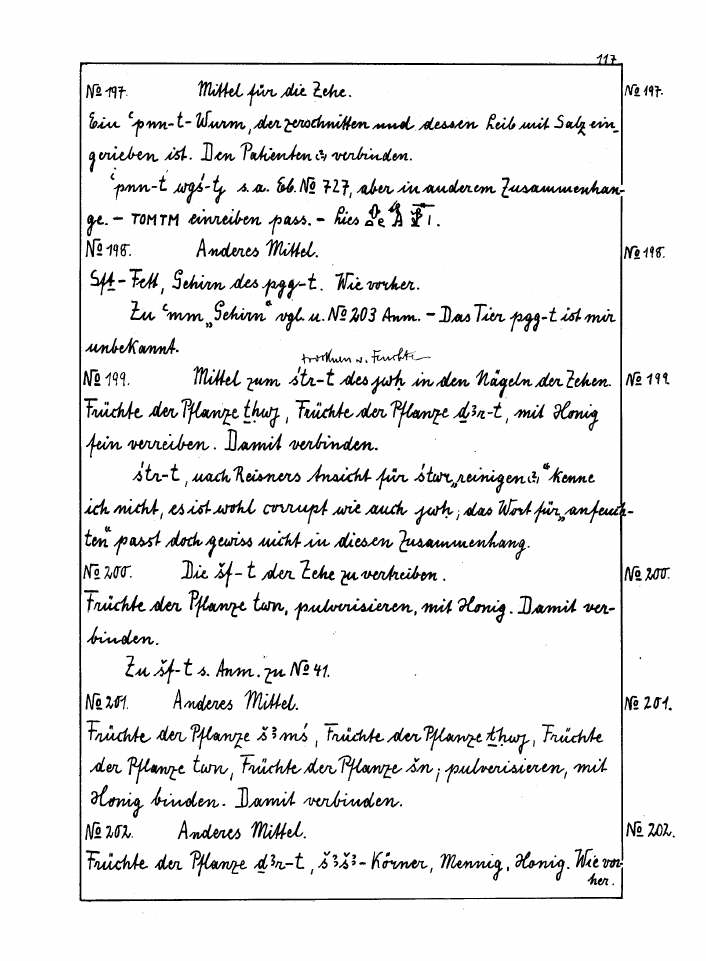 117
№ 197. Mittel für die Zehe. № 197.
Ein ꜥpnn-t-Wurm, der zerschnitten und dessen Leib mit Salz ein-
gerieben ist. Den Patienten verbinden.
ꜥpnn-t wgś-tj s.a. Eb. № 727, aber in anderem Zusammenhan-
ge. – TOMTM einreiben pass. – Lies
№ 198. Anderes Mittel. № 198.
Sft-Fett, Gehirn des pgg-t. Wie vorher.
Zu ꜥmm „Gehirn“ vgl. u. № 203 Anm. – Das Tier pgg-t ist mir
unbekannt.
trocknen v. Feucht
№ 199. Mittel zum śtr-t des jwḥ in den Nägeln der Zehen. № 199.
Früchte der Pflanze ṯḥwj, Früchte der Pflanze ḏꜣr-t, mit Honig
fein verreiben. Damit verbinden.
śtr-t, nach Reisners Ansicht für śtwr „reinigen“ kenne
ich nicht, es ist wohl corrupt wie auch jwḥ; das Wort für „anfeuch-
ten“ passt doch gewiss nicht in diesen Zusammenhang.
№ 200. Die šf-t der Zehe zu vertreiben. № 200.
Früchte der Pflanze twn, pulverisieren, mit Honig. Damit ver-
binden.
Zu šf-t s. Anm. zu № 41.
№ 201. Anderes Mittel. № 201.
Früchte der Pflanze šꜣmś, Früchte der Pflanze ṯḥwj, Früchte
der Pflanze twn, Früchte der Pflanze šn; pulverisieren, mit
Honig binden. Damit verbinden.
№ 202. Anderes Mittel. № 202.
Früchte der Pflanze ḏꜣr-t, šꜣšꜣ-Körner, Mennig, Honig. Wie vor-
her.